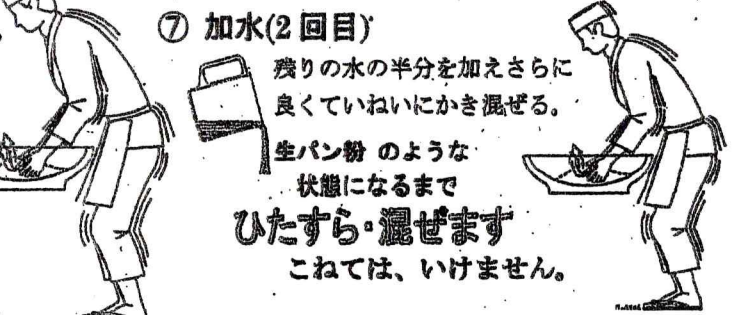 ⑦ 加水(2回目)
残りの水の半分を加えさらに
良くていねいにかき混ぜる。
生パン粉 のような
状態になるまで
ひたすら・混ぜます
こねては、いけません。